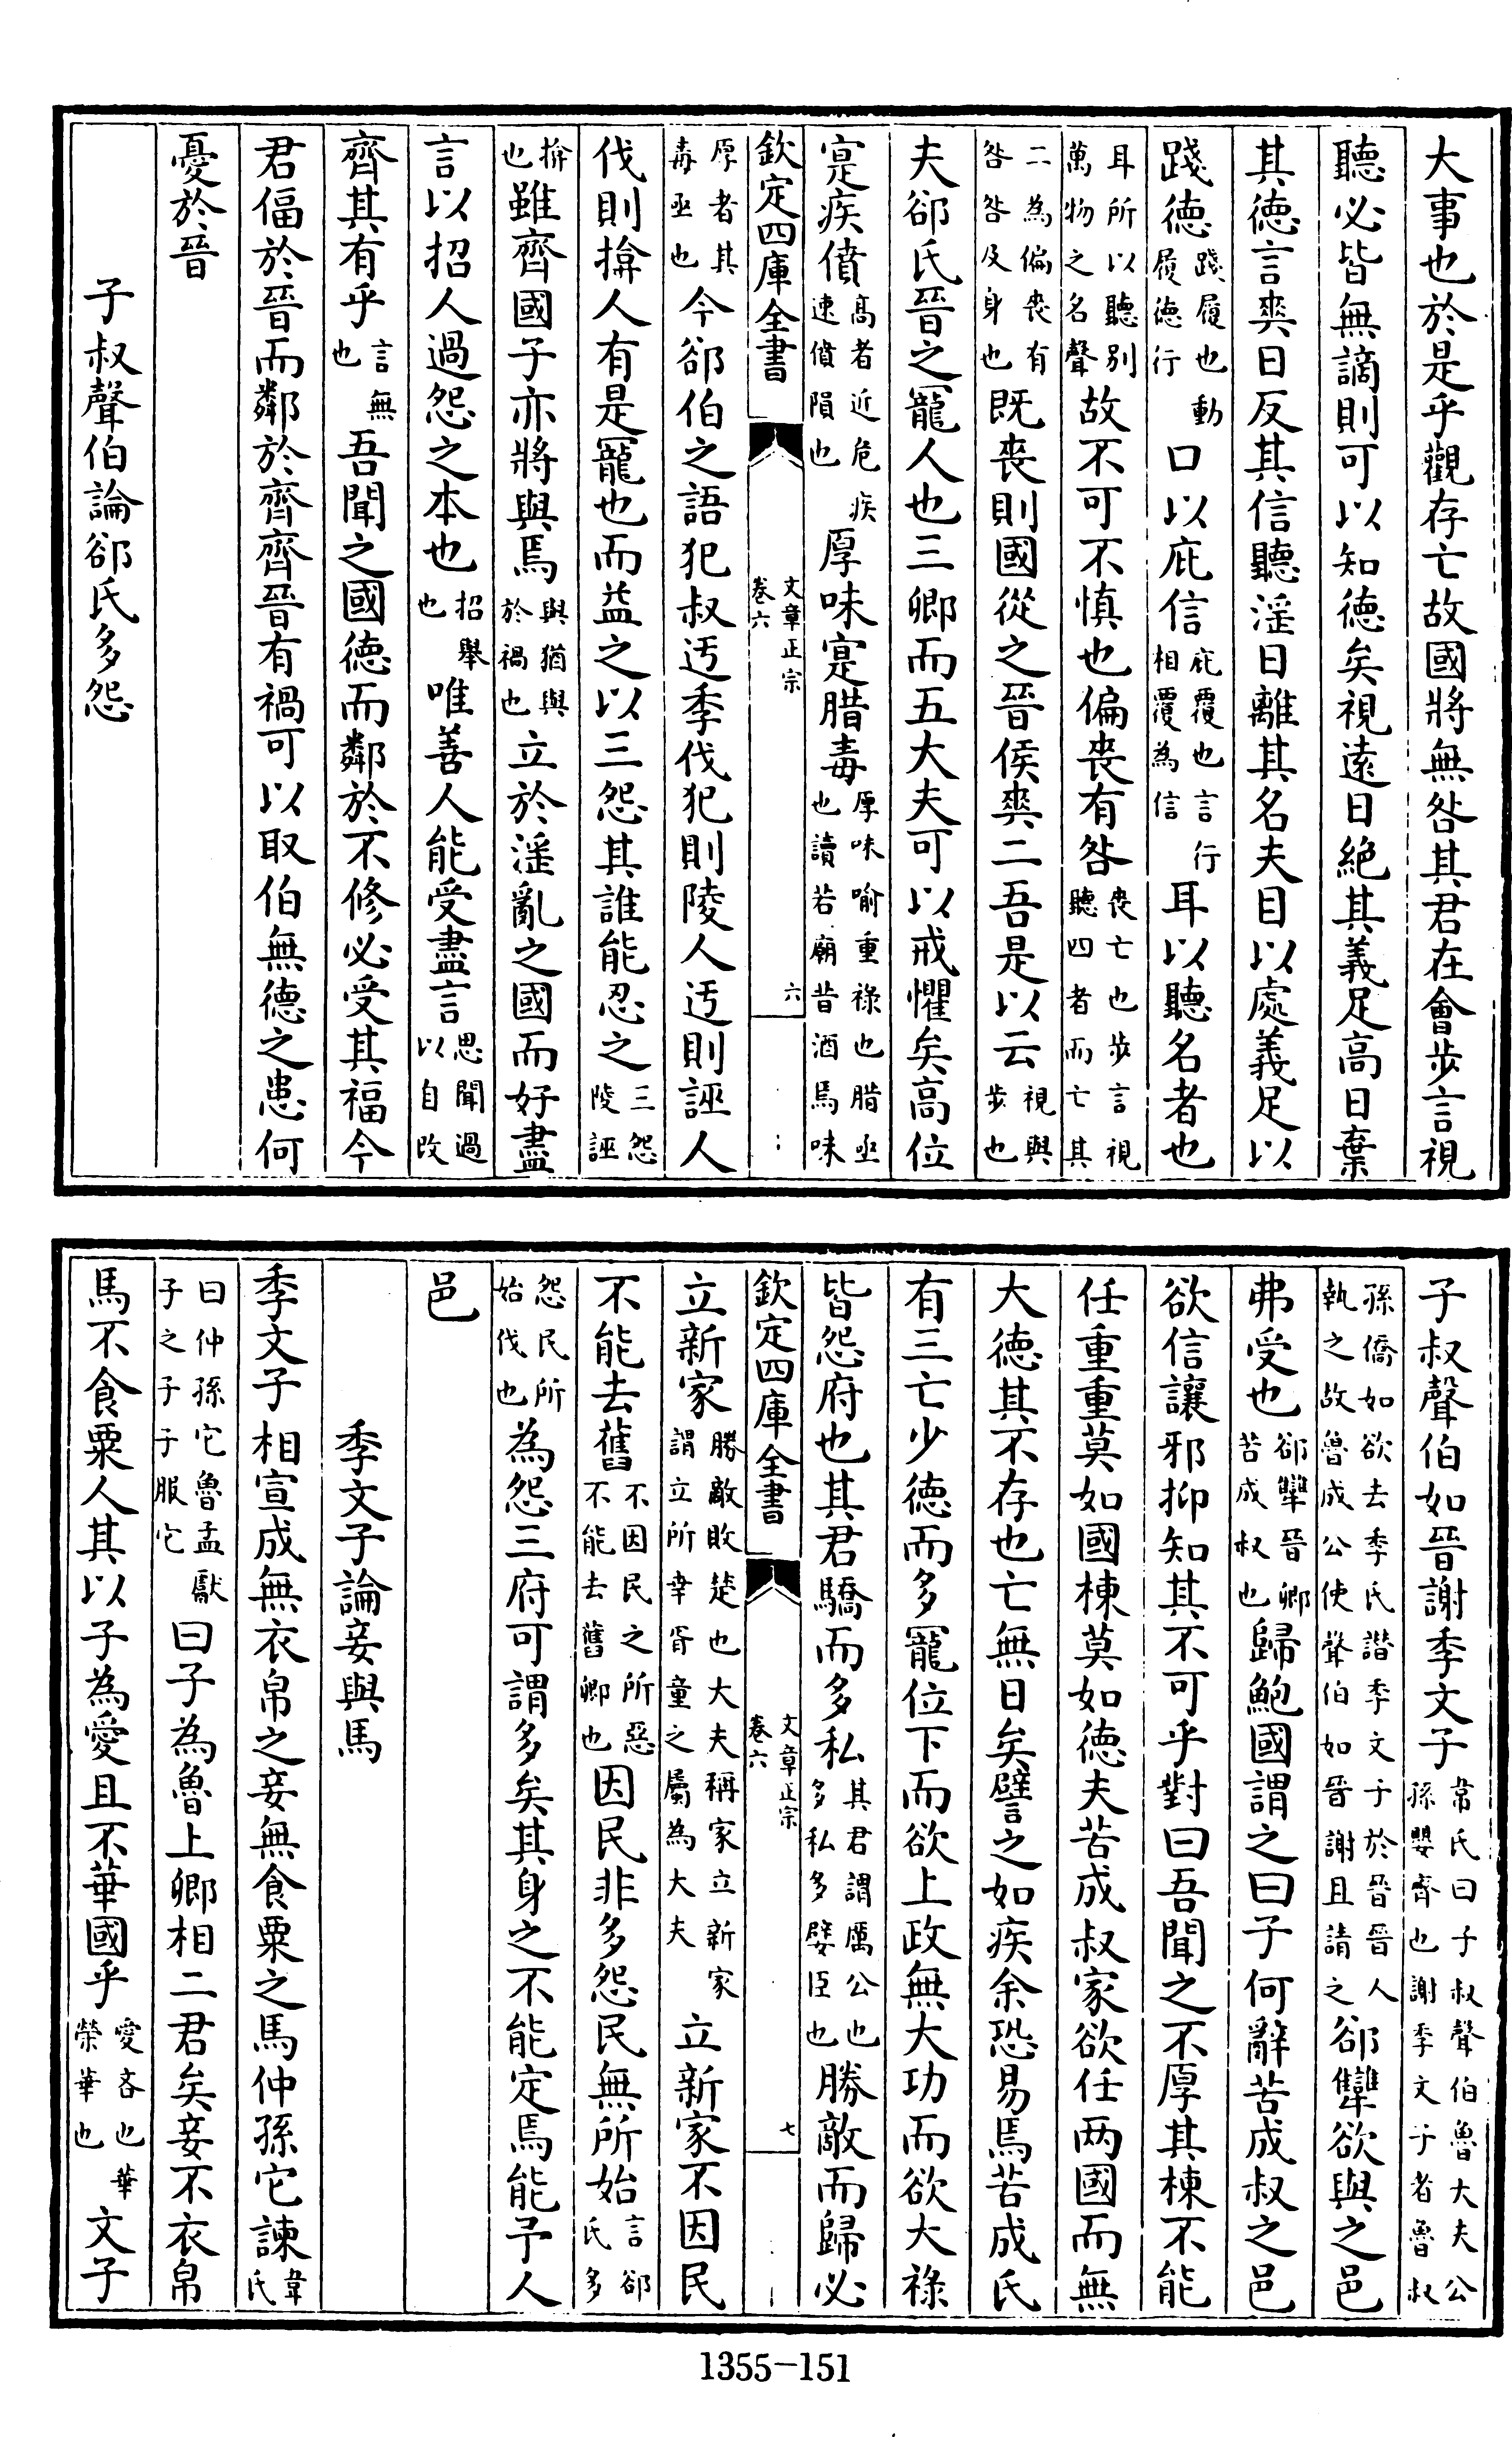 大事也於是乎觀存亡故國將無咎其君在會步言視
聽必皆無謫則可以知德矣視遠日絕其義足高日棄
其德言爽日反其信聽淫日離其名夫目以處義足以
踐德踐履也動履德行口以庇信庇覆也言行相覆為信耳以聽名者也
耳所以聽別萬物之名聲故不可不慎也偏喪有咎喪亡也步言視聽四者而亡其
二為偏喪有咎咎及身也既喪則國從之晉侯爽二吾是以云視與步也
夫郤氏晉之寵人也三卿而五大夫可以戒懼矣高位
寔疾僨高者近危疾速僨隕也厚味寔腊毒厚味喻重祿也腊亟也讀若廟昔酒焉味
欽定四庫全書 文章正宗 卷六 六
厚者其毒亟也今郤伯之語犯叔迃季伐犯則陵人迃則誣人
伐則揜人有是寵也而益之以三怨其誰能忍之三怨陵誣
揜也雖齊國子亦將與焉與猶與於禍也立於淫亂之國而好盡
言以招人過怨之本也招舉也唯善人能受盡言思聞過以自改
齊其有乎言無也吾聞之國德而鄰於不修必受其福今
君偪於晉而鄰於齊齊晉有禍可以取伯無德之患何
憂於晉
子叔聲伯論郤氏多怨
子叔聲伯如晉謝季文子韋氏曰子叔聲伯魯大夫公孫嬰齊也謝季文子者魯叔
孫僑如欲去季氏譖季文子於晉晉人執之故魯成公使聲伯如晉謝且請之郤犫欲與之邑
弗受也郤犫晉卿苦成叔也歸鮑國謂之曰子何辭苦成叔之邑
欲信讓邪抑知其不可乎對曰吾聞之不厚其棟不能
任重重莫如國棟莫如德夫苦成叔家欲任两國而無
大德其不存也亡無日矣譬之如疾余恐易焉苦成氏
有三亡少德而多寵位下而欲上政無大功而欲大祿
皆怨府也其君驕而多私其君謂厲公也多私多嬖臣也勝敵而歸必
欽定四庫全書 文章正宗 卷六 七
立新家勝敵敗楚也大夫稱家立新家謂立所幸胥童之屬為大夫立新家不因民
不能去舊不因民之所惡不能去舊卿也因民非多怨民無所始言郤氏多
怨民所始伐也為怨三府可謂多矣其身之不能定焉能予人
邑
季文子論妾與馬
季文子相宣成無衣帛之妾無食粟之馬仲孫它諫韋氏
曰仲孫它魯孟獻子之子子服它曰子為魯上卿相二君矣妾不衣帛
馬不食粟人其以子為愛且不華國乎愛吝也華榮華也文子
1355—151